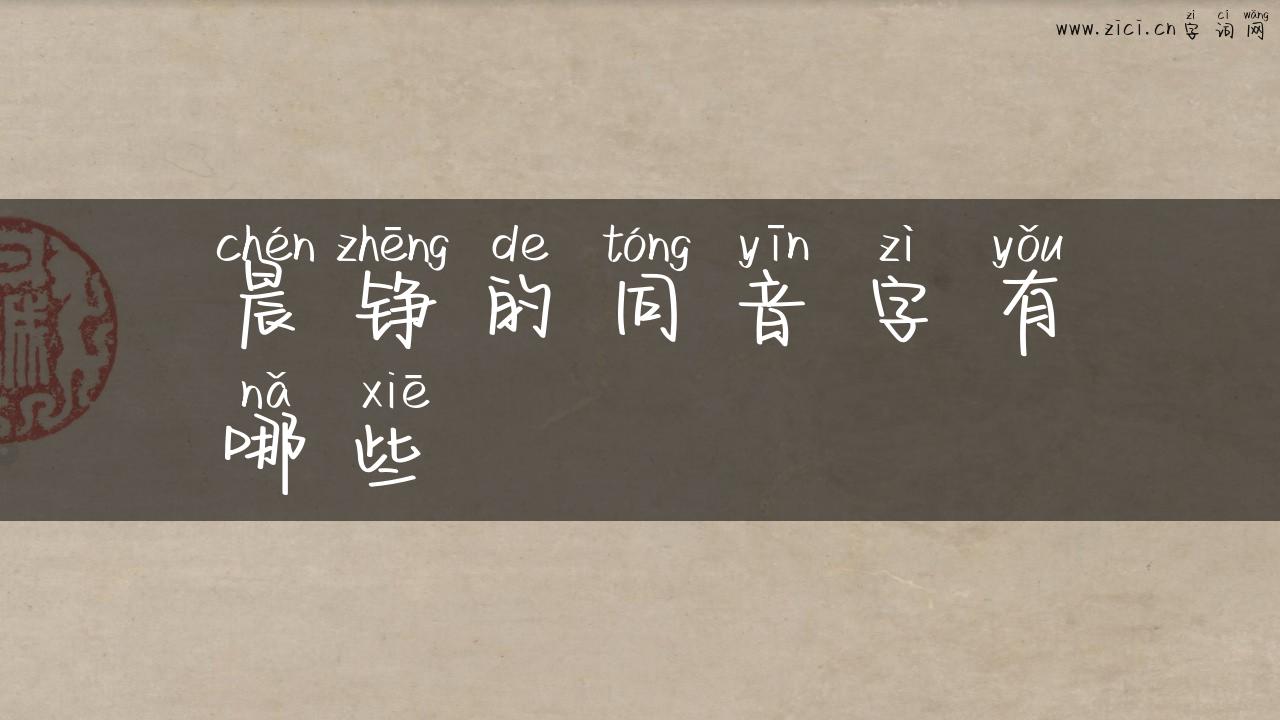 zì cí wǎng
www.zici.cn 字词网
chén zhēng de tóng yīn zì yǒu
晨铮的同音字有
nǎ xiē
哪些